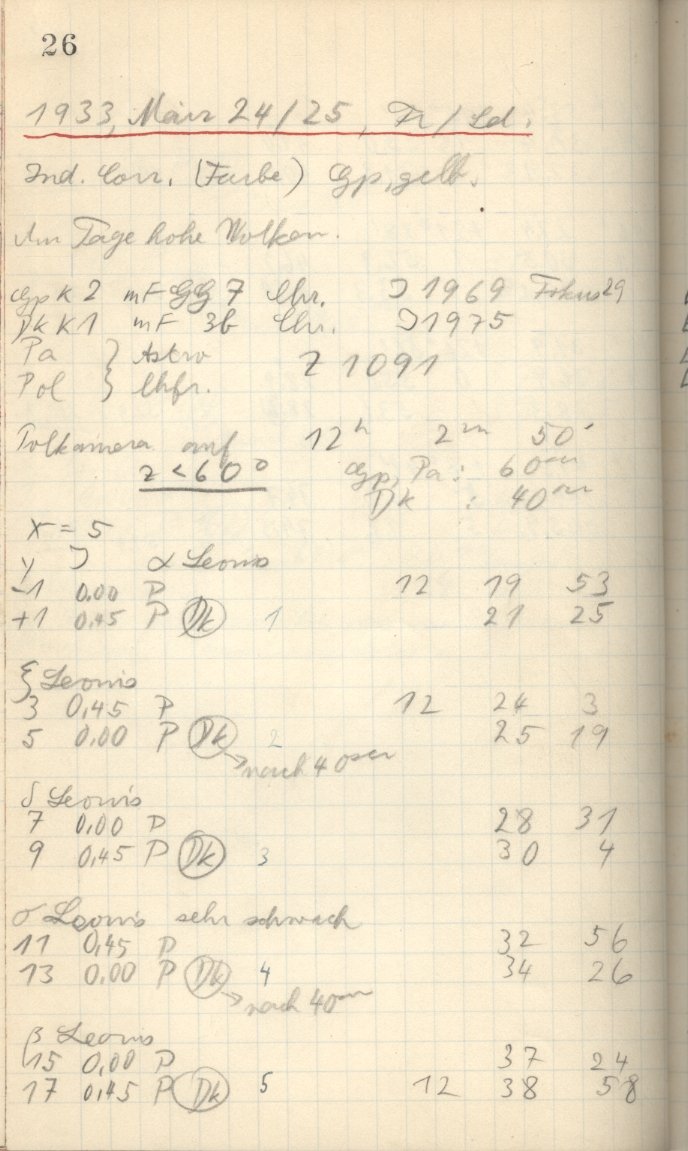 26
1933, März 24/25, Fr/Sd.
Ind. Corr. (Farbe) Gp, gelb.
Am Tage hohe Wolken.
Gp K 2 mF GG 7 Uhr. J 1969 Fokus 29
Dk K1 mF 3b Uhr. J 1975
Pa } Astro Z 1091
Pol } Uhfr.
Polkamera auf 12h 2m 50s
z < 60° Gp, Pa: 60sec
Dk : 40sec
x = 5
y J α Leonis
-1 0.00 P 12 19 53
+1 0,45 P Dk 1 21 25
ξ Leonis
3 0,45 P 12 24 3
5 0.00 P Dk 2 25 19
→ nach 40sec
δ Leonis
7 0,00 P 28 31
9 0,45 P Dk 3 30 4
σ Leonis sehr schwach
11 0,45 P 32 56
13 0.00 P Dk 4 34 26
→ nach 40sec
β Leonis
15 0,00 P 37 24
17 0,45 P Dk 5 12 38 58